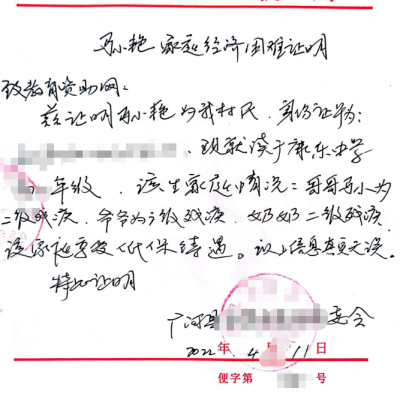 孙小艳家庭经济困难证明
致教育资助网:
兹证明孙小艳为我村民,身份证号为:
现就读于康东中学
年级,该生家庭情况:哥哥孙小为
二级残疾,爷爷为三级残疾,奶奶二级残疾
该家庭享受 低保待遇。以上信息真实无误。
特此证明
广河县 委会
2022年4月11日
便字第 号